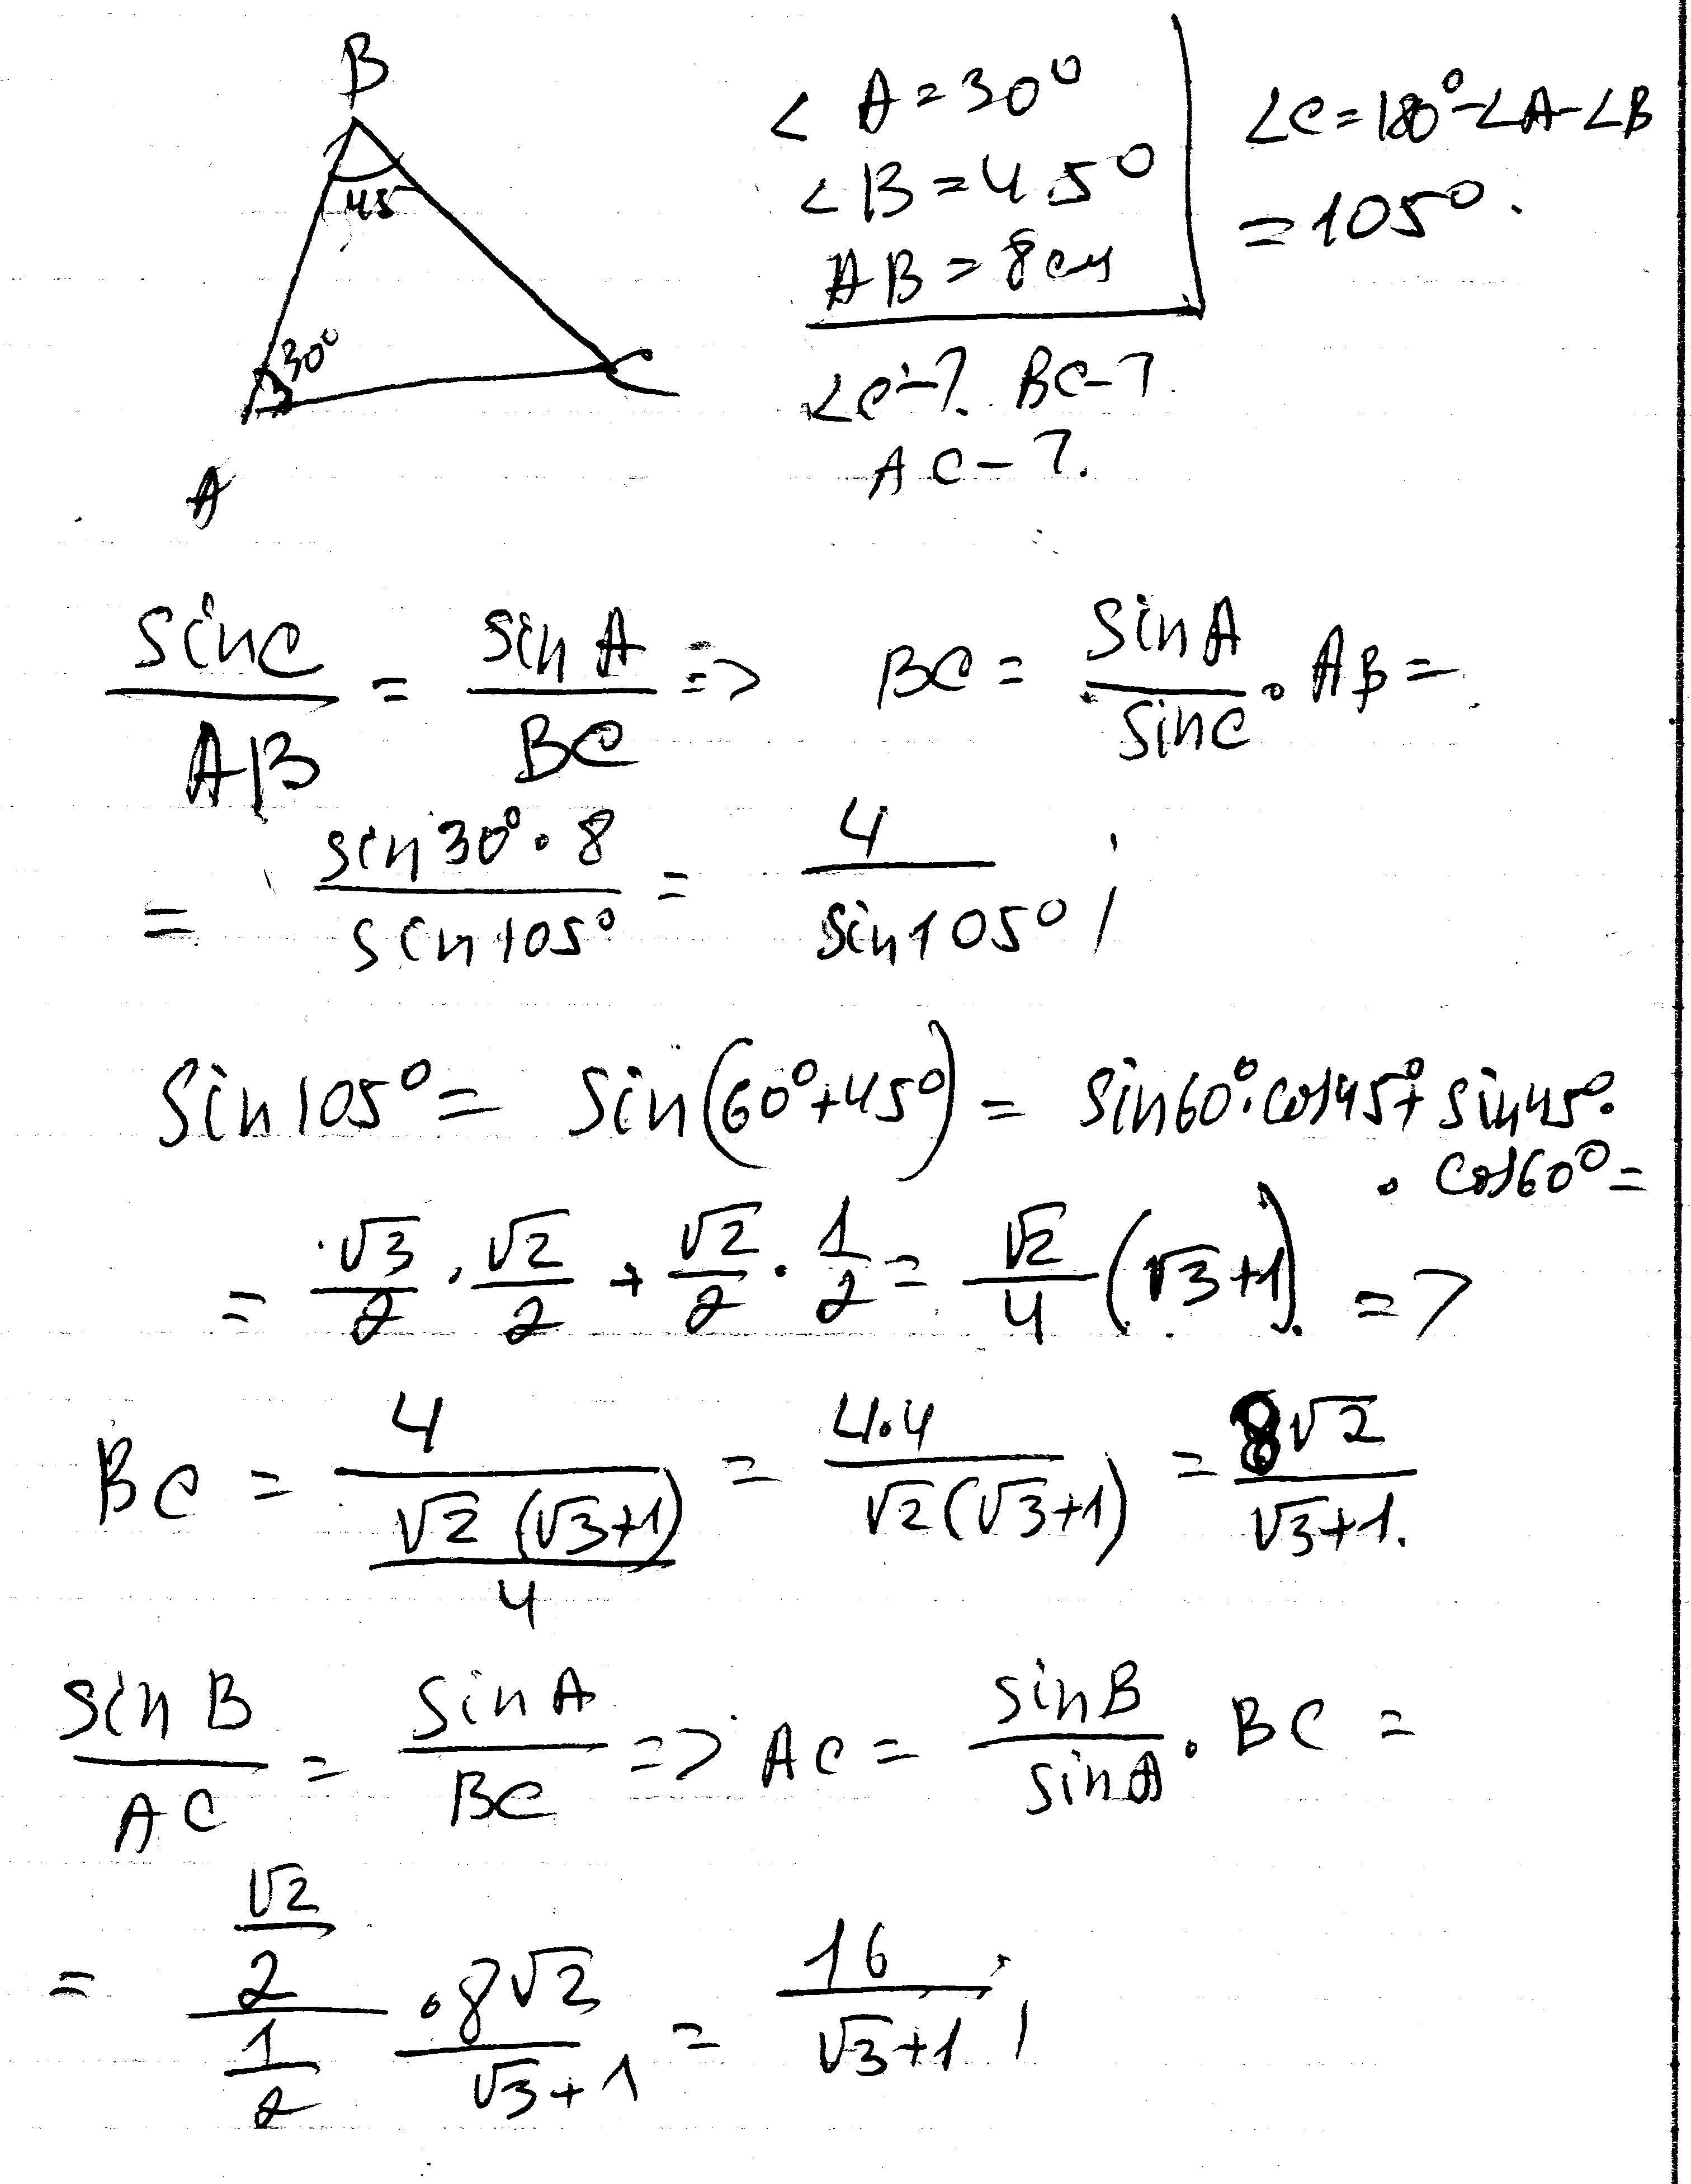 B
45
30°
A
C
∠A=30°
∠B=45°
AB=8см
∠C-? BC-?
AC-?
∠C=180°-∠A-∠B
=105°.
sinC/AB = sinA/BC => BC = sinA/sinC · AB =
= sin30°·8/sin105° = 4/sin105° ;
Sin105° = Sin(60°+45°) = sin60°·cos45°+sin45°·
· cos60° =
= √3/2 · √2/2 + √2/2 · 1/2 = √2/4 (√3+1). =>
BC = 4/(√2(√3+1)/4) = 4·4/(√2(√3+1)) = 8√2/(√3+1).
sinB/AC = sinA/BC => AC = sinB/sinA · BC =
= (√2/2)/(1/2) · 8√2/(√3+1) = 16/(√3+1) ;